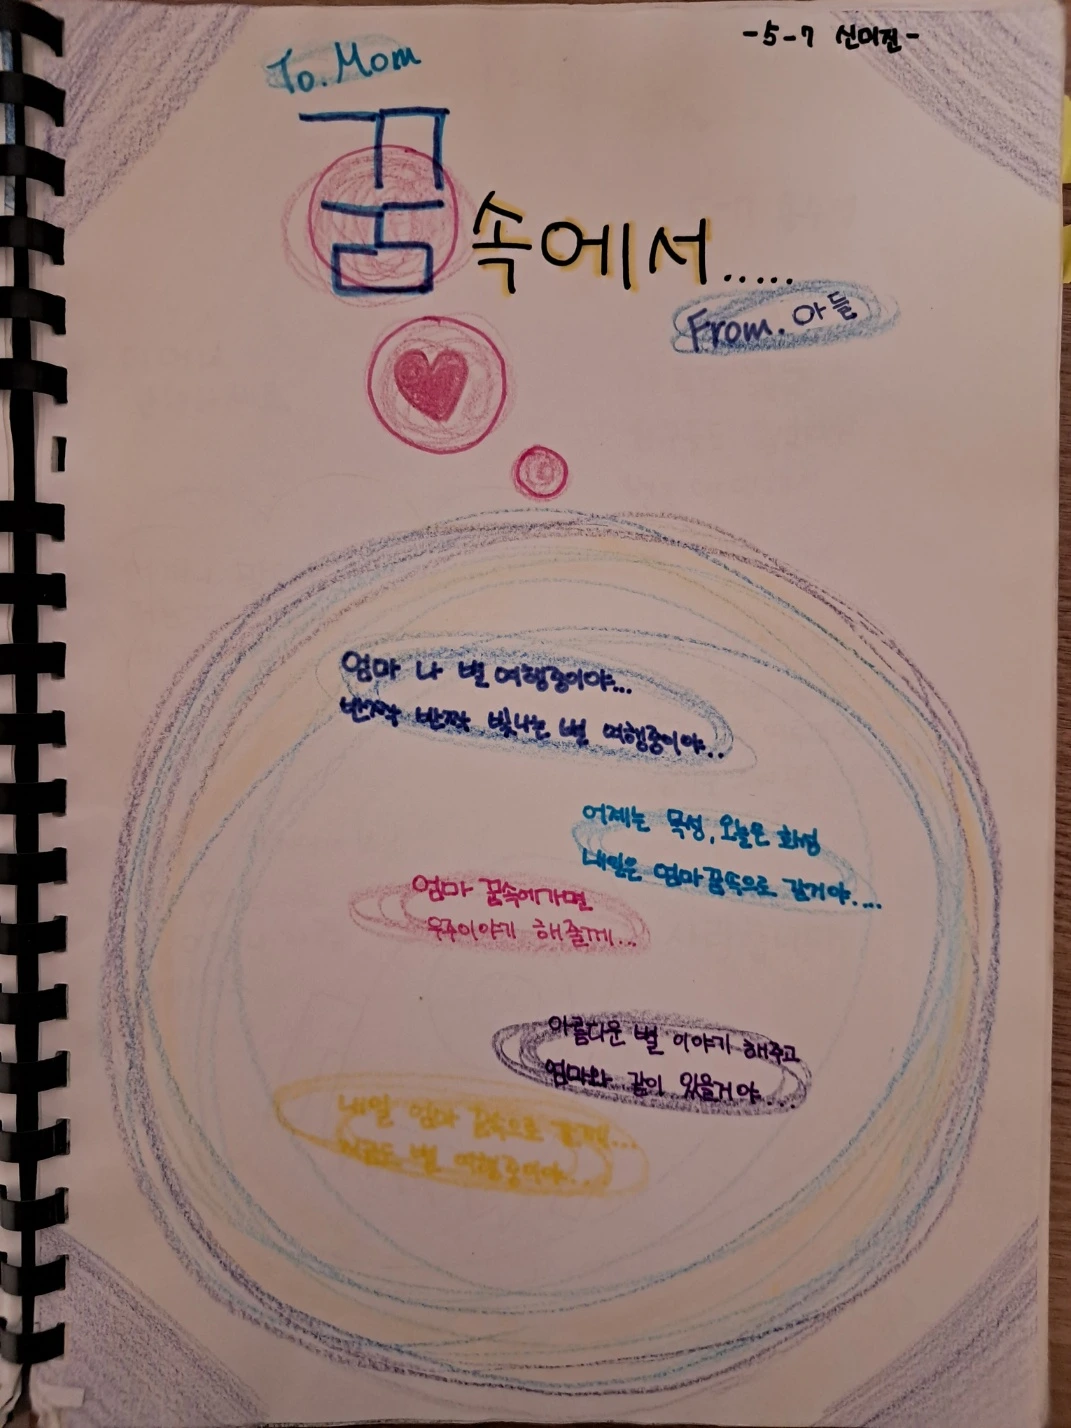 -5-7 신미진-
To. Mom
꿈속에서.....
From. 아들
엄마 나 별 여행중이야...
반짝 반짝 빛나는 별 여행중이야..
어제는 목성, 오늘은 화성
내일은 엄마 꿈속으로 갈거야....
엄마 꿈속에가면
우주이야기 해줄께...
아름다운 별 이야기 해주고
엄마와 같이 있을거야...
내일 엄마 꿈속으로 갈께...
지금도 별 여행중이야..